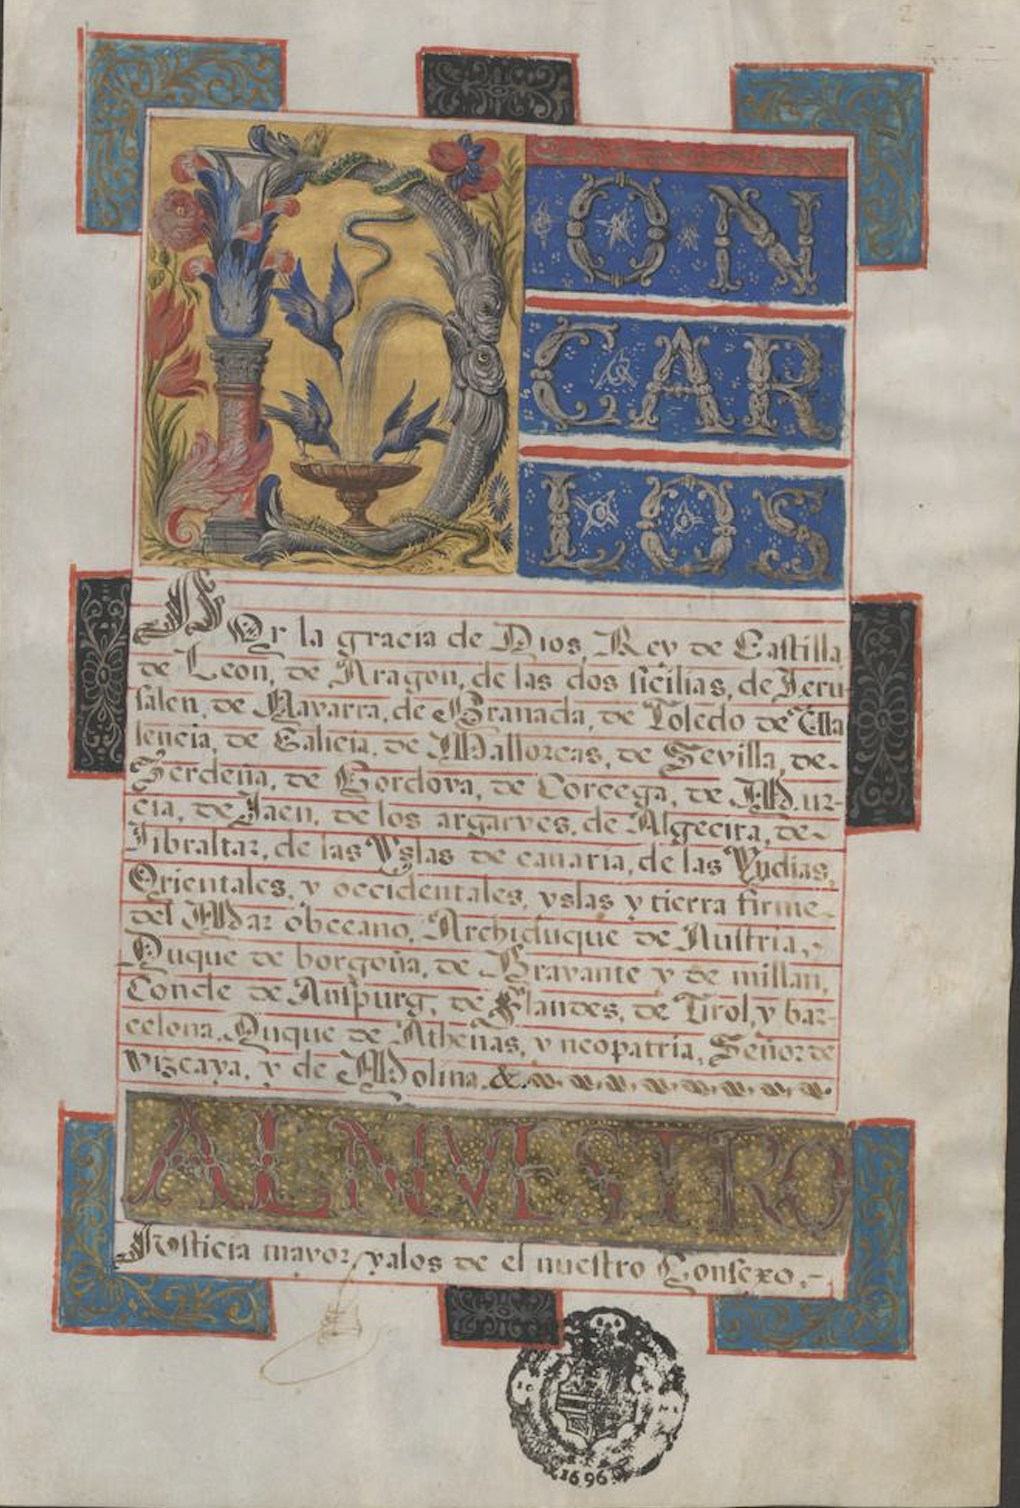 2
DON
CAR
LOS
POr la gracia de Dios, Rey de Castilla,
de Leon, de Aragon, de las dos sicilias, de Ieru-
salen, de Navarra, de Granada, de Toledo de Va
lencia, de Galicia, de Mallorcas, de Sevilla, de-
Zerdeña, de Cordova, de Corcega, de Mur-
cia, de Jaen, de los argarves, de Algecira, de-
Jibraltar, de las Yslas de canaria, de las Yndias,
Orientales, y occidentales, yslas y tierra firme
del Mar obceano, Archiduque de Austria,
Duque de borgoña, de Bravante y de millan,
Conde de Auspurg, de Flandes, de Tirol, y bar-
celona, Duque de Atheñas, y neopatria, Señor de
Vizcaya, y de Molina &.
AL NVESTRO
Justicia mayor, y alos de el nuestro Consexo,-
1696